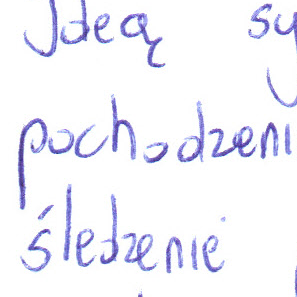 Ideą sy
pochodzeni
śledzenie